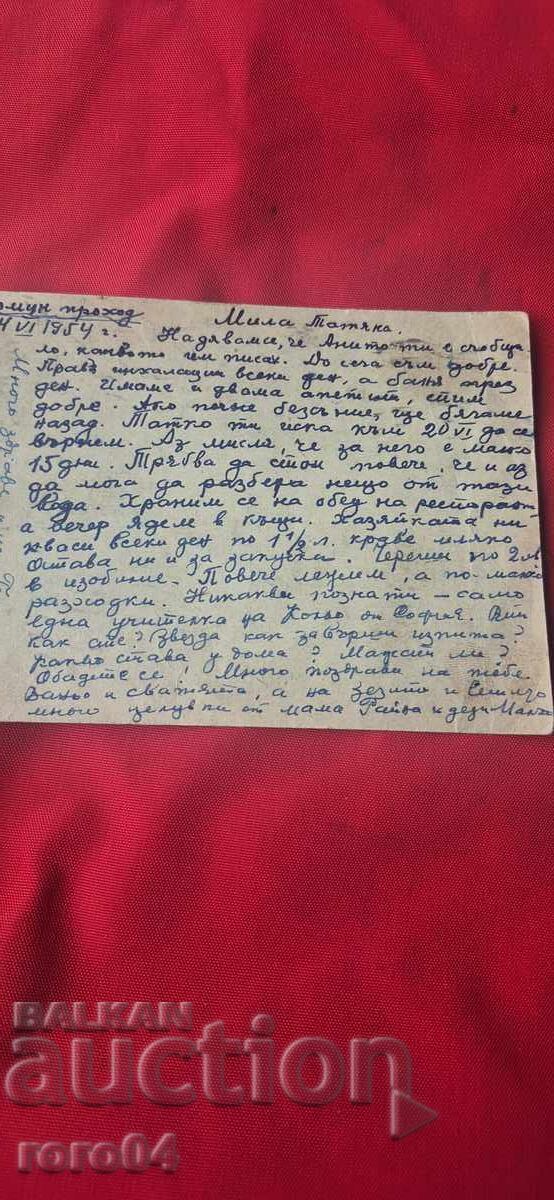 проход
VI 1954 г.
Мила Татяна.
Надявам се, че Анито ти е съобщи-
ло, каквото чем писах. До сега съм добре.
Правя инхалации всеки ден, а баня през
ден. Имаме и двама апетит, спим
добре. Ако почне безсъние, ще бягаме
назад. Татко ти иска към 20 VI да се
върнем. Аз мисля, че за него е малко
15 дни. Трябва да стои повече, че и аз
да мога да разбера нещо от тази
вода. Храним се на обед на ресторант
а вечер ядем в къщи. Хазяйката ни
кваси всеки ден по 1 1/2 л. краве мляко
остава ни и за закуска. Череши по 2 лв
в изобилие. Повече лежим, а по-малко
разходки. Никакви познати – само
една учителка на от София. Ви
как сте? Звезда как завърши изпита?
Какво става у дома? Мажат ли?
Обадете се! Много поздрави на тебе.
Ваньо и сватята, а на зезито и
много целувки от мама Райна и дези
Много здраве
BALKAN
auction
roro04